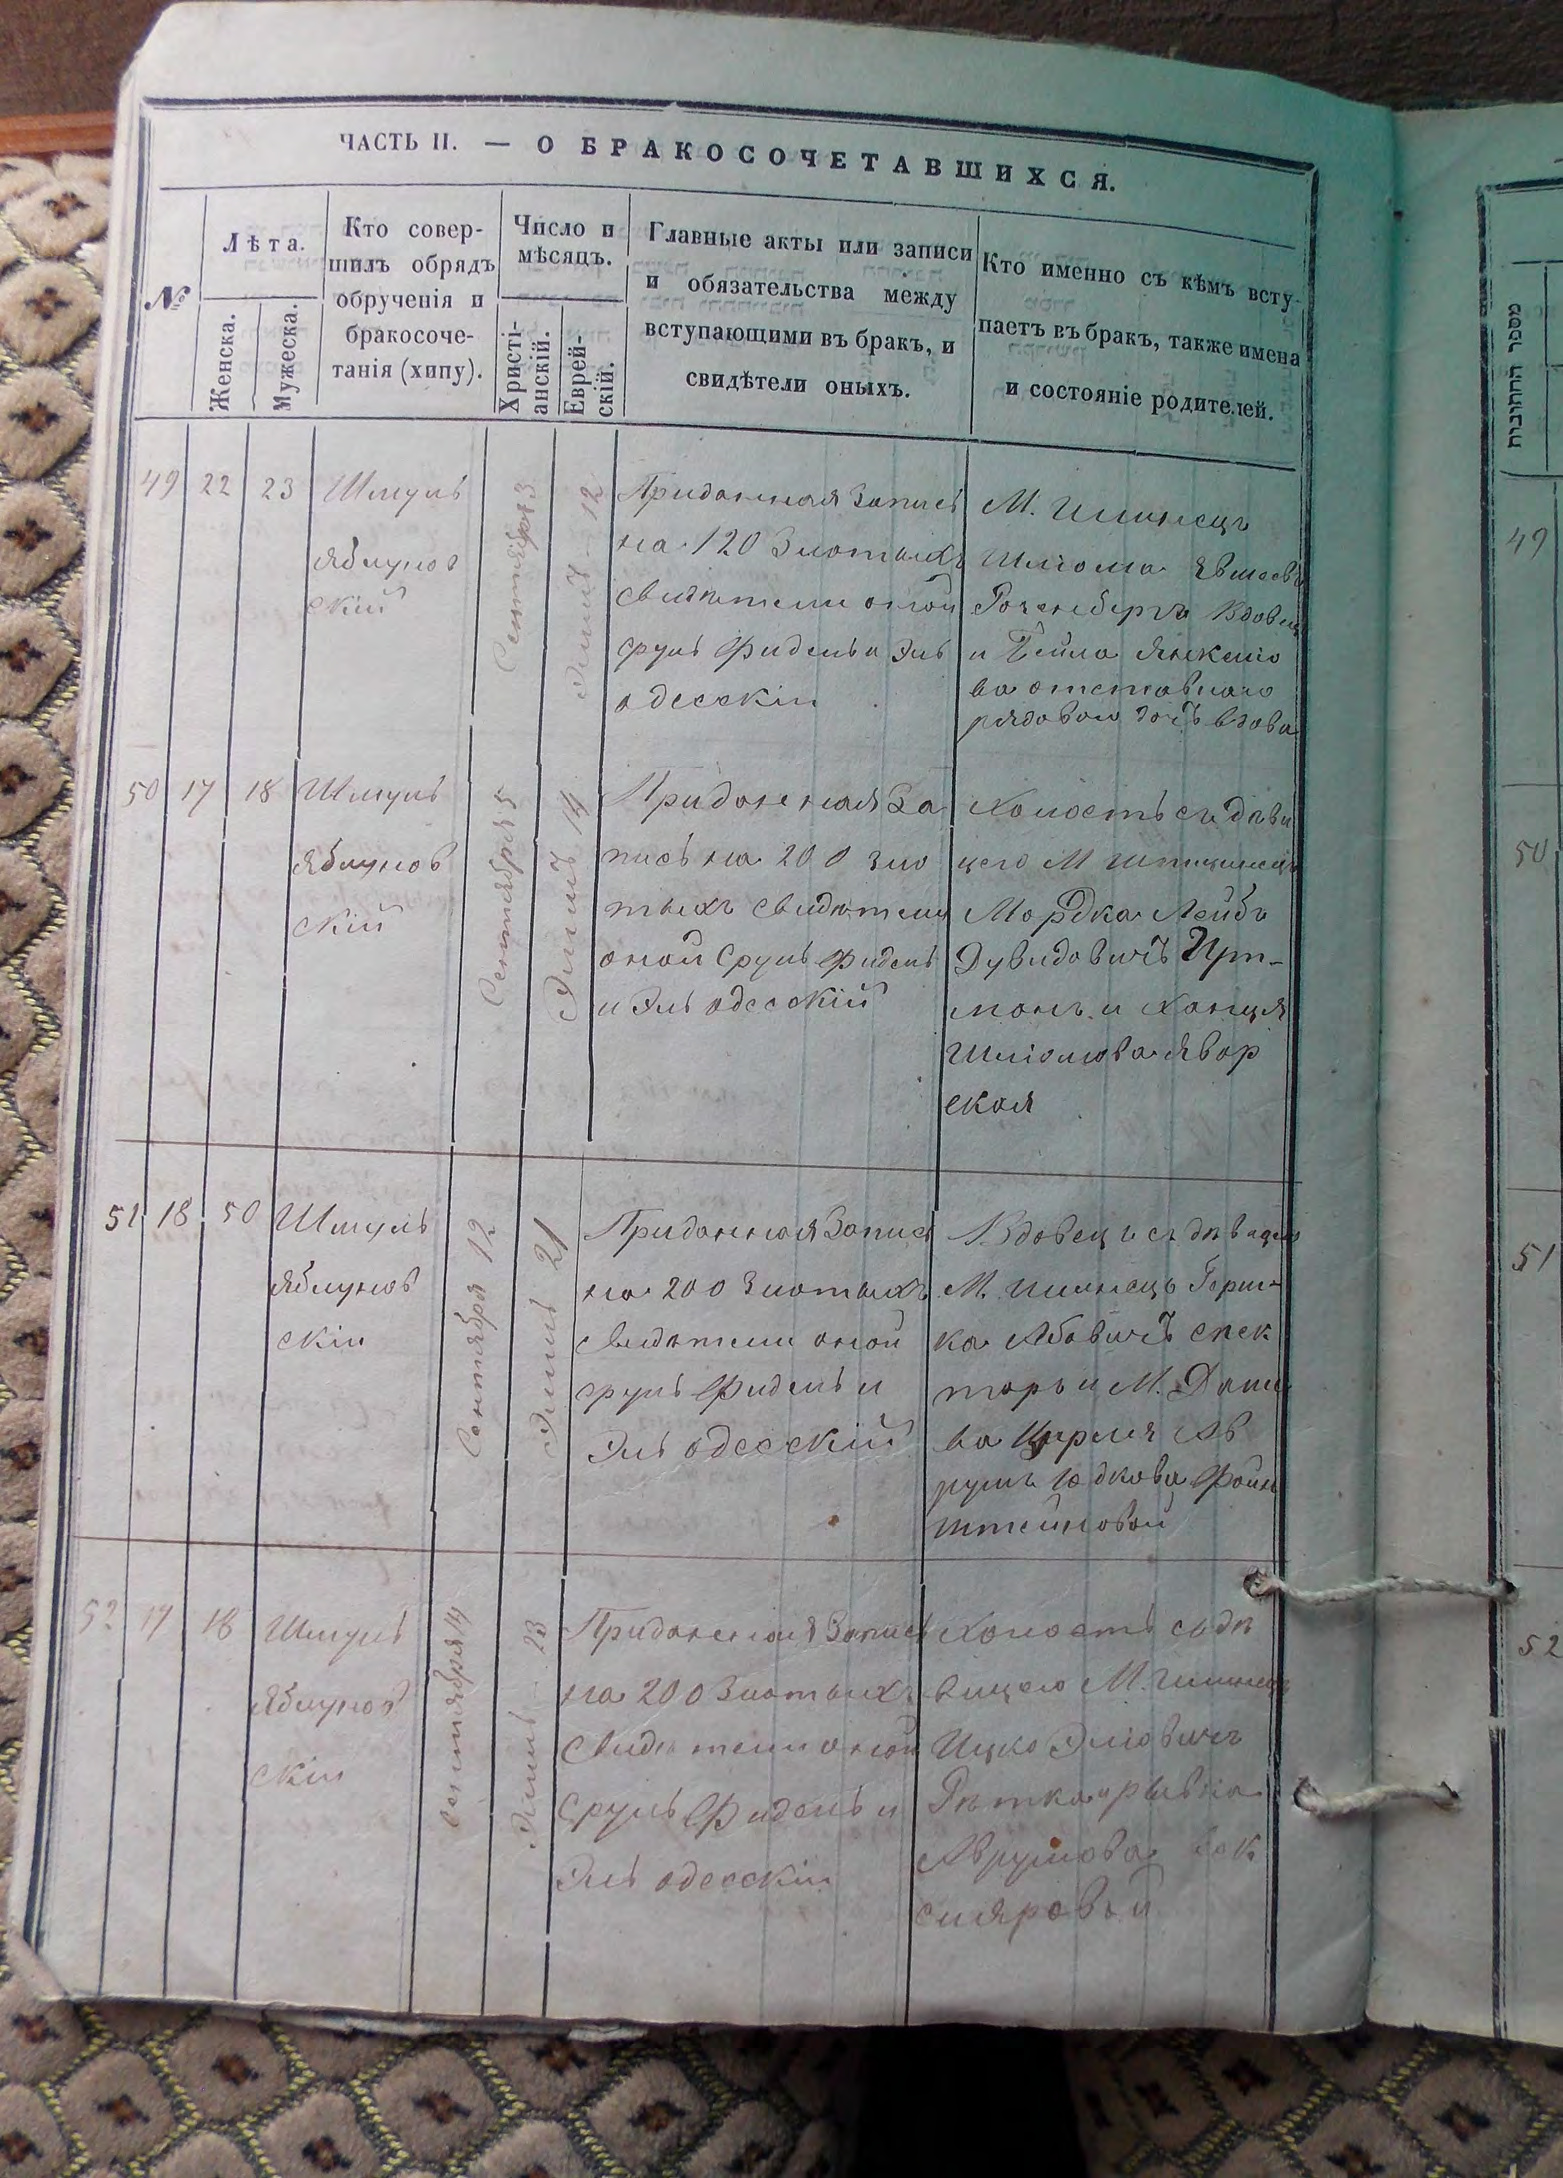 ЧАСТЬ II. — О БРАКОСОЧЕТАВШИХСЯ.
№
Лѣта.
Женска.
Мужеска.
Кто совер-
шилъ обрядъ
обрученія и
бракосоче-
танія (хипу).
Число и
мѣсяцъ.
Христі-
анскій.
Еврей-
скій.
Главные акты или записи
и обязательства между
вступающими въ бракъ, и
свидѣтели оныхъ.
Кто именно съ кѣмъ всту-
паетъ въ бракъ, также имена
и состояніе родителей.
49 22 23
Шмуль
Яблунов
скій
Сентября 3
Элиль 12
Приданная Запись
на 120 Злотыхъ
Свидѣтели оной
Сруль Фидель и Эль
одесскій
М.
Шліома
вдовец
и Бейла Янкелю
ва отставнаго
рядоваго дочь вдова
50 17 18
Шмуль
Яблунов
скій
Сентября 5
Элиль 14
Приданная За
пись на 200 зло
тыхъ Свидѣтели
оной Сруль Фидель
и Эль одесскій
Холостъ съ дѣви
цею М
Мордка Лейбъ
Дувидовичъ
и Ханця
Шліомова Явор
ская
51 18 50
Шмуль
Яблунов
скій
Сентября 12
Элиль 21
Приданная Запись
на 200 Злотыхъ
Свидѣтели оной
Сруль Фидель и
Эль одесскій
Вдовецъ съ дѣвицею
М. Герш-
ка Абовичъ спек
торъ и М. Даши
ва Цирля Ав
румъ Юдкова Файн
штейновой
52 17 18
Шмуль
Яблунов
скій
Сентября 14
Элиль 23
Приданная Запись
на 200 Злотыхъ
Свидѣтели оной
Сруль Фидель и
Эль одесскій
Холостъ съ дѣ
вицею М.
Ицко Эліовичъ
Аврумова
מספר החתונות
49
50
51
52